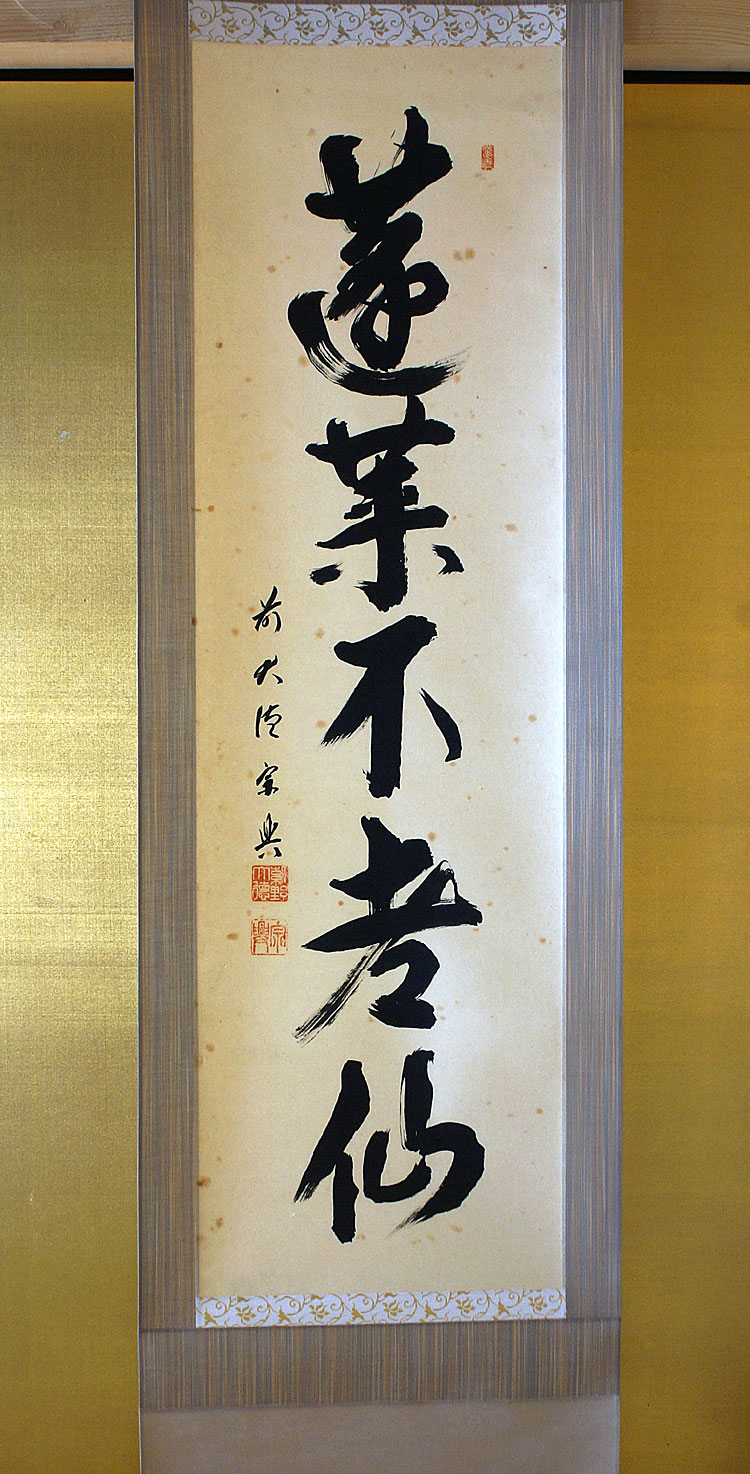 蓬莱不老仙
前大徳宗典